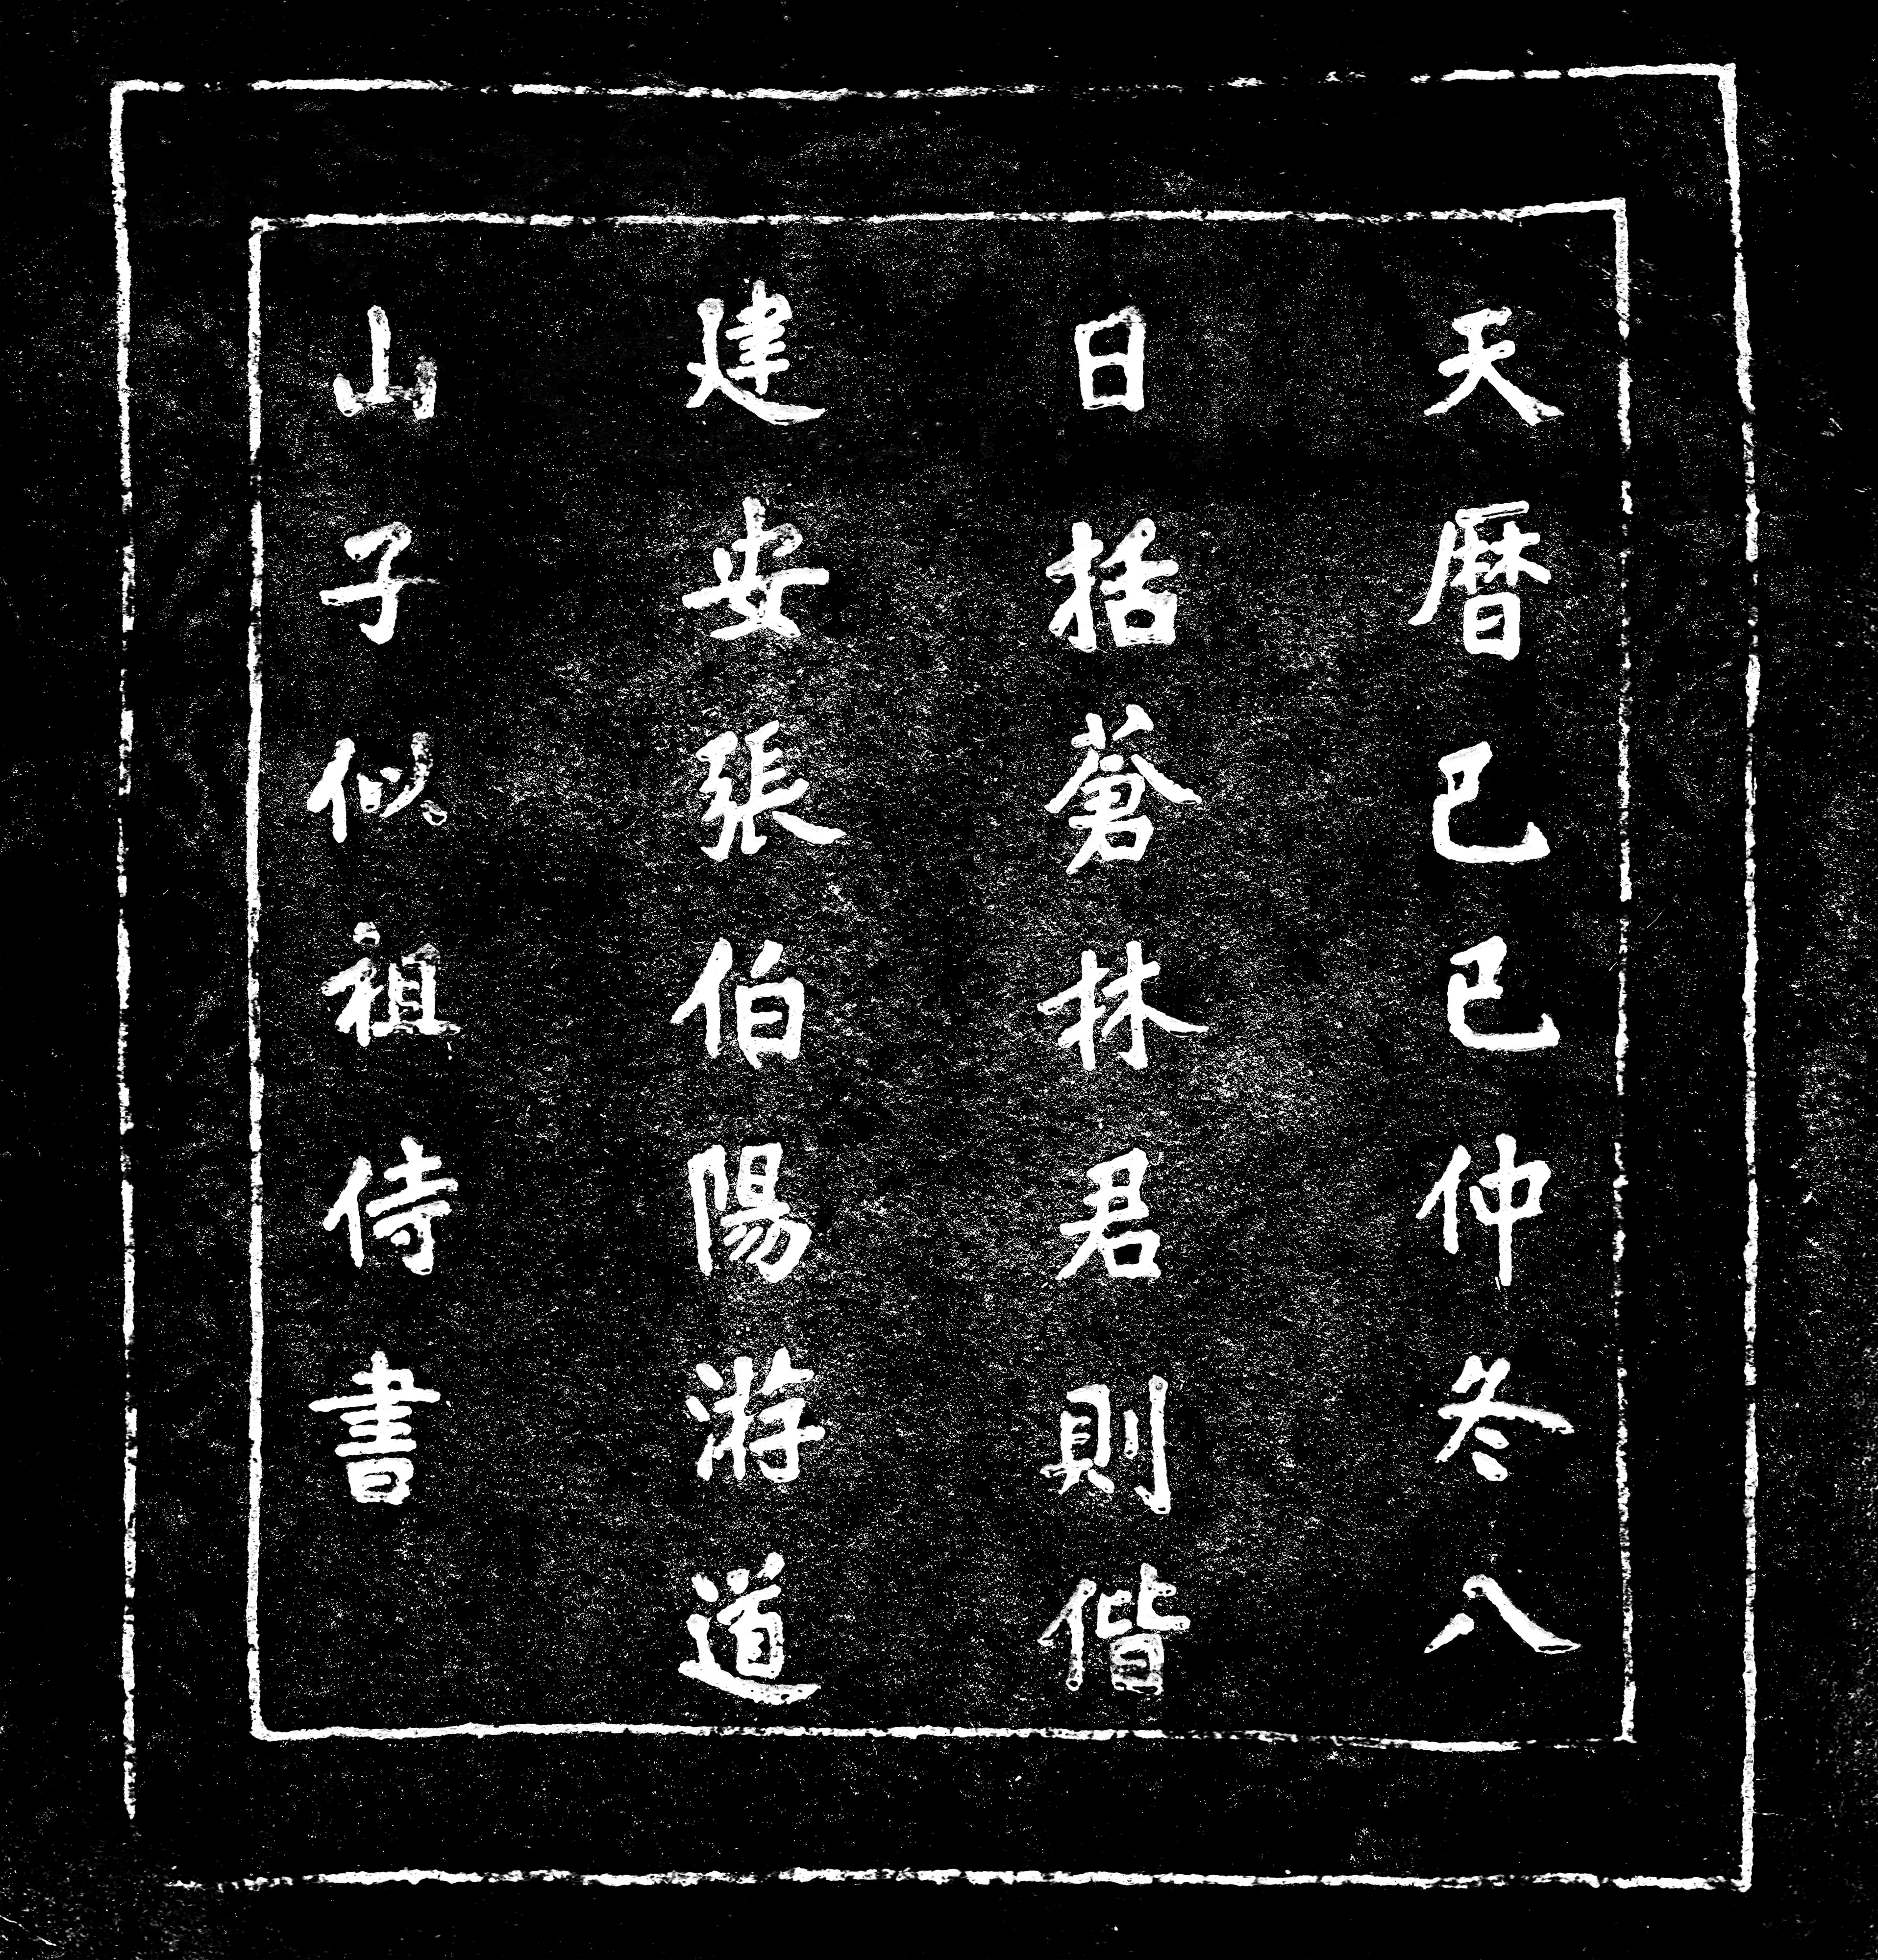 天暦己巳仲冬八
日括蒼林君則偕
建安張伯陽游道
山子似祖侍書